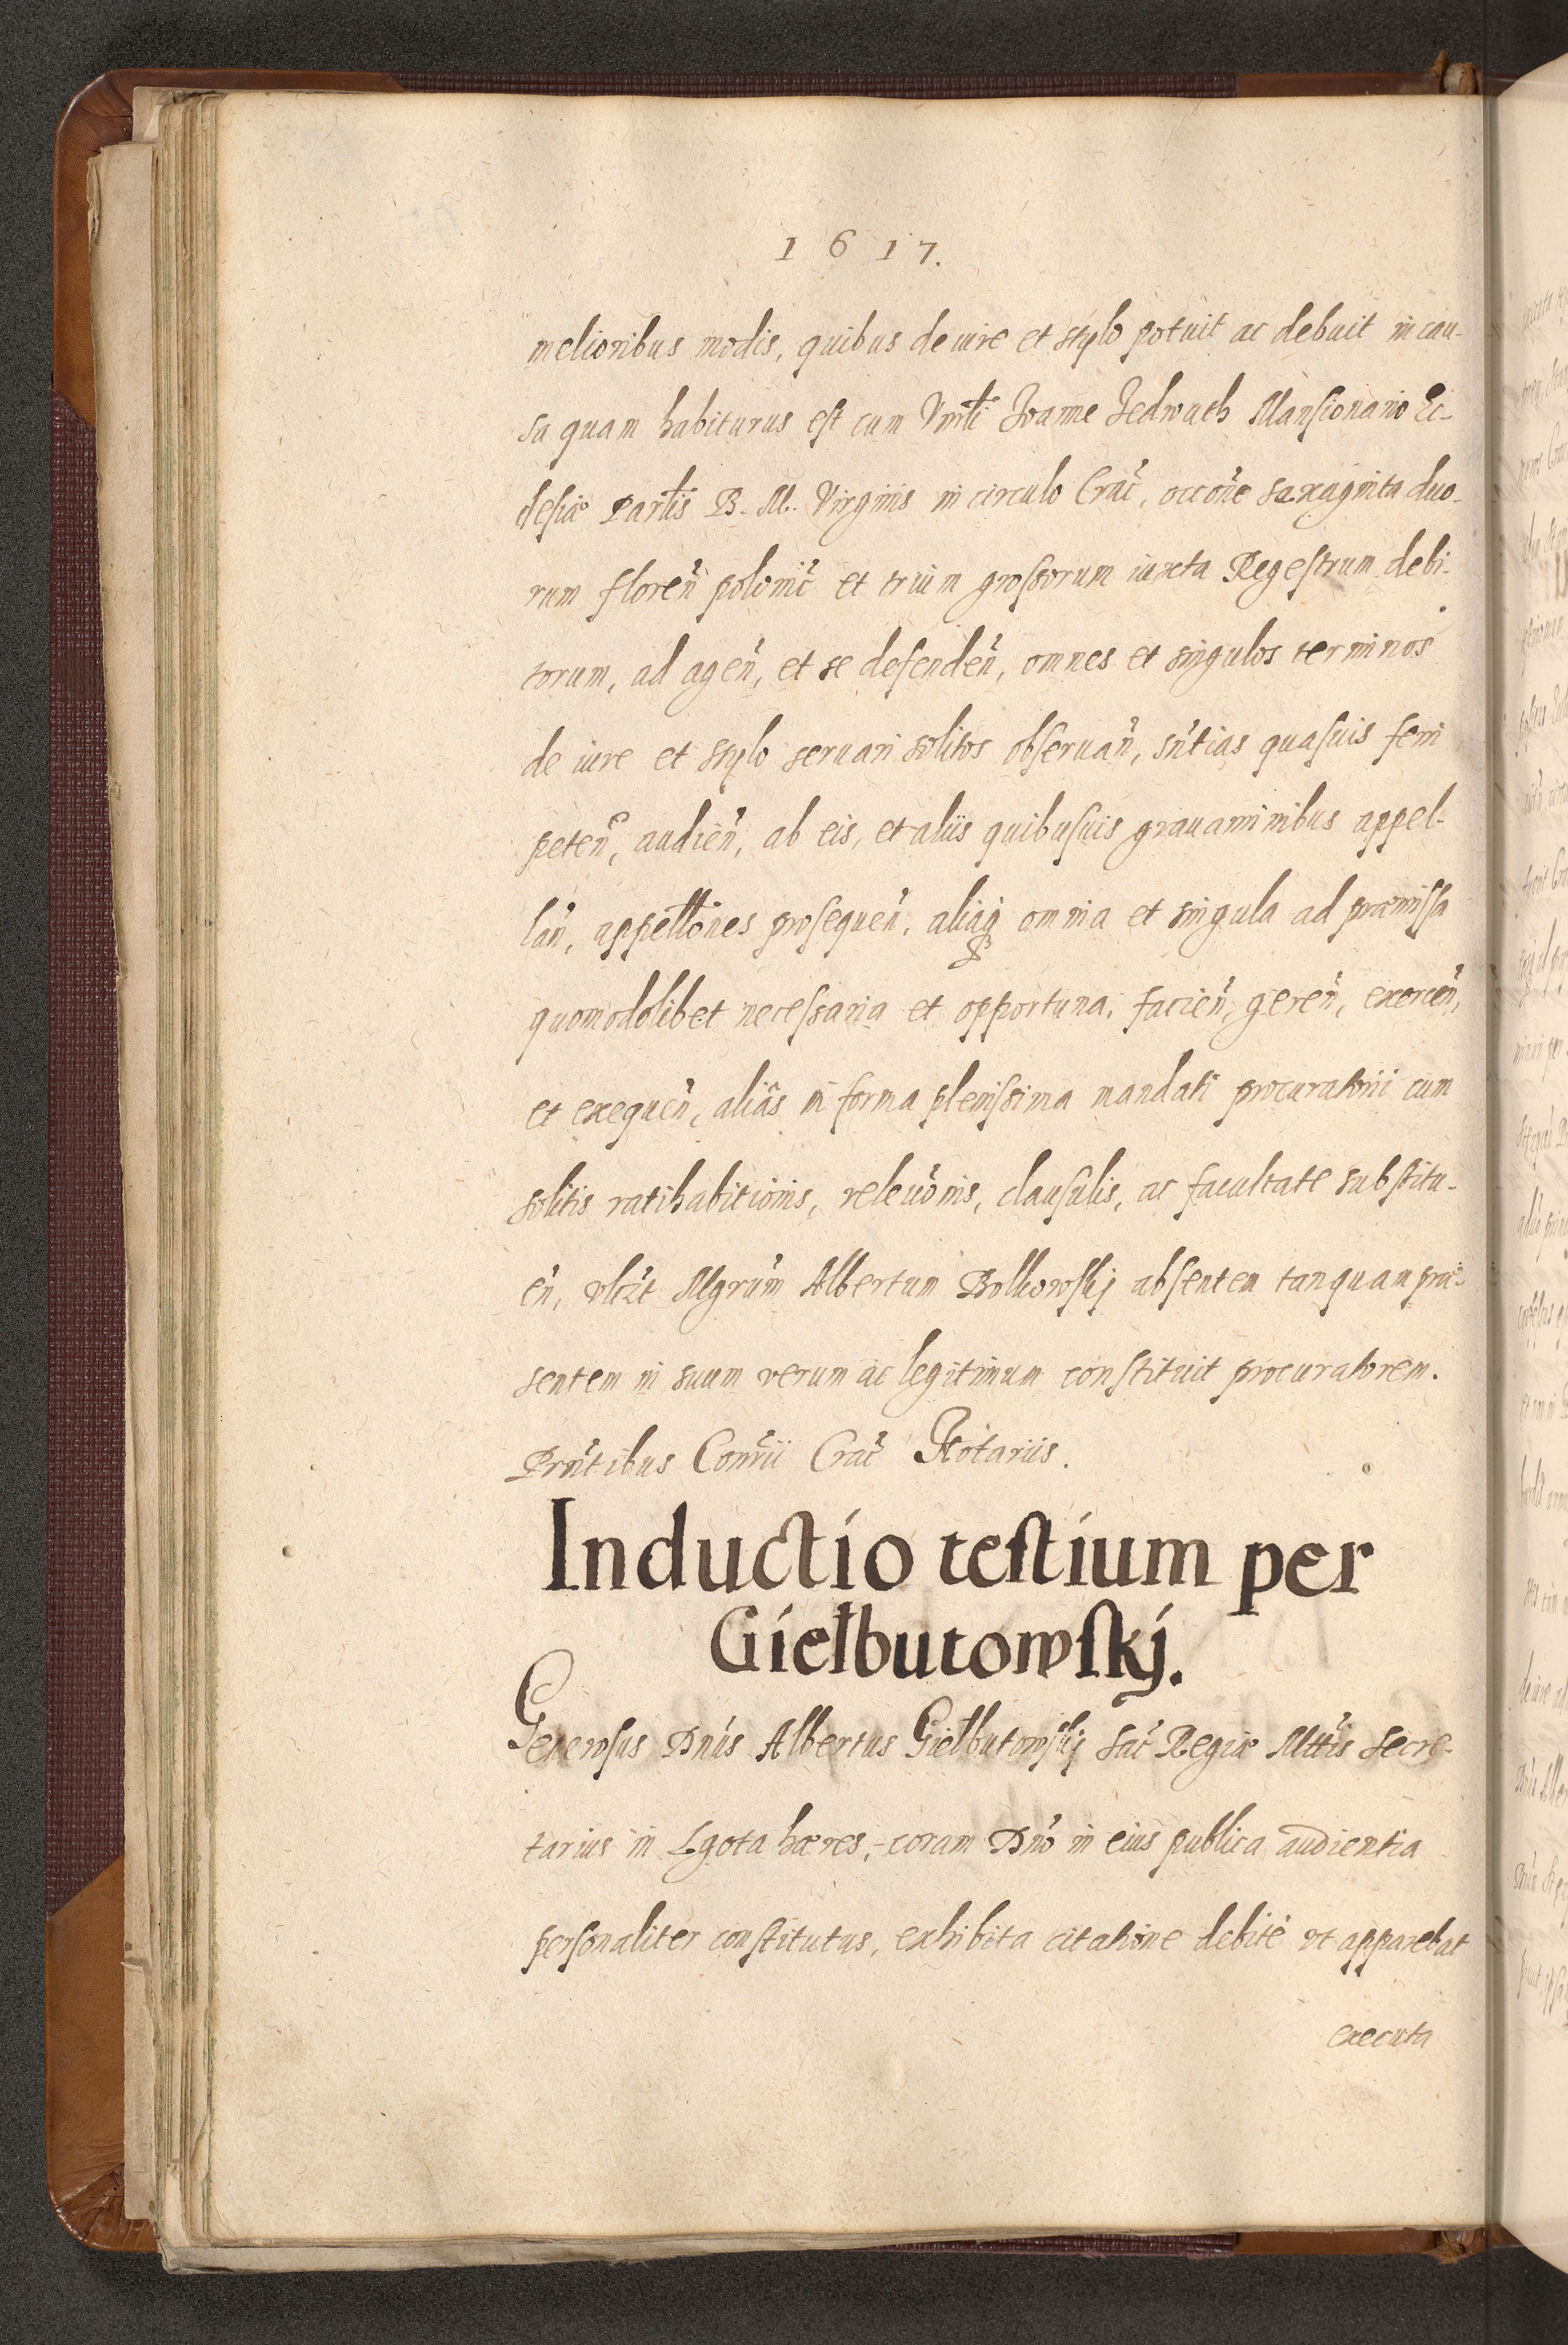 1617.
melioribus modis, quibus de iure et stylo potuit ac debuit in cau-
sa quam habiturus est cum Vnrli Ioanne Jedwath Mansionario Ec-
clesiæ Parlis B. M. Virginis in circulo Crac̃, occõne saxaginta duo-
rum floreñ polonic̃ et trium grossorum iuxta Regestrum debi-
torum, ad ageñ, et se defendeñ, omnes et singulos terminos
de iure et stylo seruari solitos obseruañ, sñtias quasuis ferri
peteñ, audieñ, ab eis, et aliis quibusuis grauaminibus appel-
lañ, appellõnes prosequeñ, aliaq; omnia et singula ad præmissa
quomodolibet necessaria et opportuna, facieñ, gereñ, exerceñ,
et exequeñ, aliãs in forma plenissima mandati procuratorii cum
solitis ratihabitionis, releuõnis, clausulis, ac facultate substitu-
eñ, vlizt Mgrum Albertum Bolkowskj absentem tanquam præ-
sentem in suum verum ac legitimum constituit procuratorem.
Prñtibus Conrii Crac̃ Notariis.
Inductio testium per
Giełbutowskj.
Generosus Dñus Albertus Giełbutowskj Sac̃ Regiæ Mttis Secre-
tarius in Lgota hæres, coram Dño in eius publica audientia
personaliter constitutus, exhibita citatione debite vt apparebat
executa